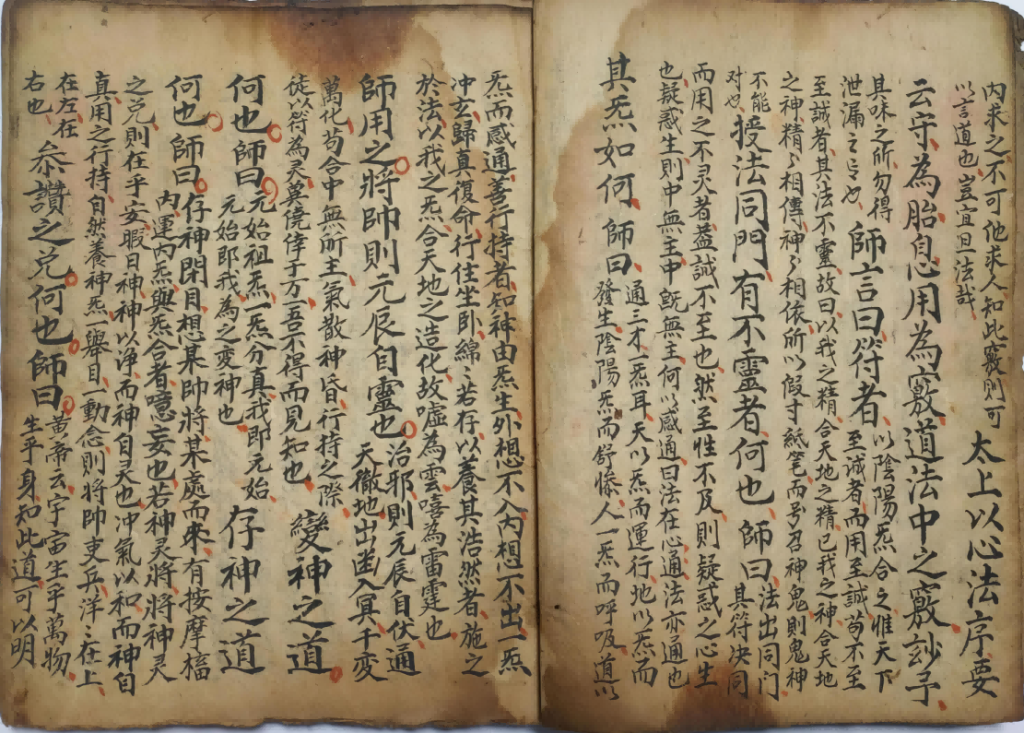 内求之不可他求人知此竅則可
以言道也豈宜旦法哉 太上以心法序要
云守為胎息用為竅道法中之竅玅予
其味之所勿得 泄漏之旨也 師言曰符者 以陰陽炁合之惟天下 至誠者而用至誠苟不至
至誠者其法不靈故曰以我之精合天地之精已我之神合天地
之神精〻相傳神〻相依所以假寸紙笔而号召神鬼則鬼神
不能 对也 授法同門有不靈者何也 師曰 法出同门 其符决同
而用之不灵者葢誠不至也然至性不及則疑惑之心生
也疑惑生則中無主中既無主何以感通曰法在心通法亦通也
其炁如何 師曰 通三才一炁耳天以炁而運行地以炁而 發生陰陽炁而舒惨人一炁而呼吸道以
炁而感通善行持者知神由炁生外想不入内想不出一炁
冲玄歸真復命行住坐卧綿〻若存以養其浩然者施之
於法以我之炁合天地之造化故嘘為雲嘻為雷霆也
師用之將帥則元辰自靈也 治邪則元辰自伏通 天徹地出幽入冥千变
萬化苟合中無所主氣散神昏行持之際
徒以符為灵奠僥倖于万一吾不得而見知也 變神之道
何也師曰 元始祖炁一炁分真我即元始 元始即我為之变神也 存神之道
何也師曰 存神閉目想某帥將某處而來有按摩樻 内運内炁與炁合者噫妄也若神灵將將神灵
之兑則在乎安暇日神神以净而神自灵也冲氣以和而神自
真用之行持自然養神炁一舉目一動念則將帥吏兵洋〻在上
在左在 右也 叅讃之兑何也師曰 黄帝云宇宙生乎萬物 生乎身知此道可以明